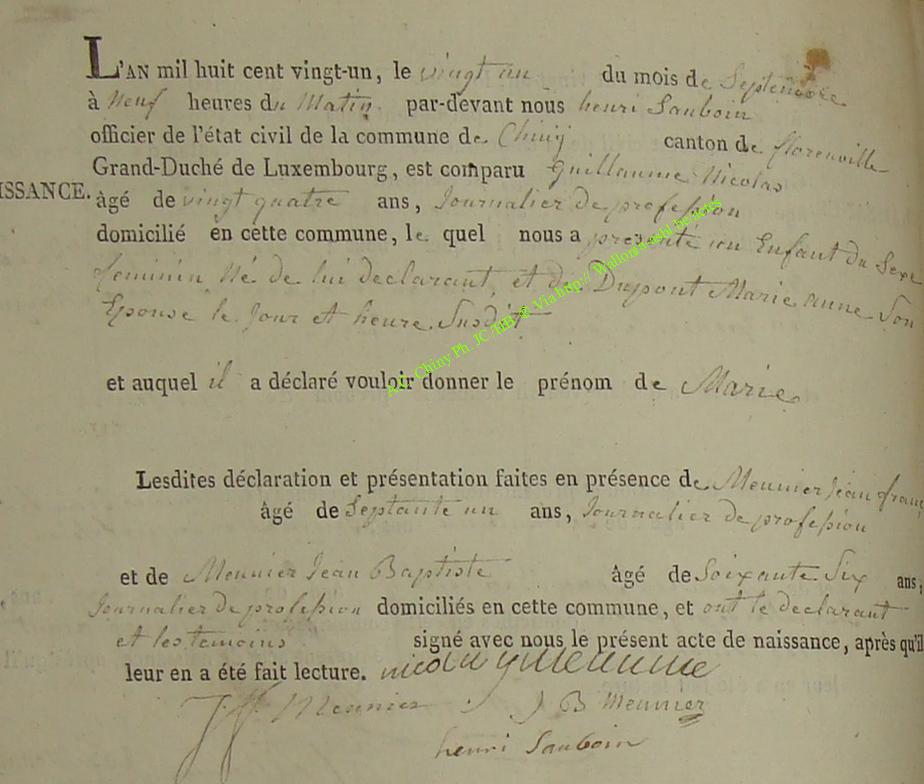 L'AN mil huit cent vingt-un, le vingt un du mois de Septembre
à Neuf heures du Matin par-devant nous henri Sauboin
officier de l'état civil de la commune de Chiny canton de florenville
Grand-Duché de Luxembourg, est comparu Guillaumme Nicolas
ISSANCE.
âgé de vingt quatre ans, Journalier de profession
domicilié en cette commune, le quel nous a présenté un Enfant du Sexe
feminin Né de lui declarant, et de Dupont Marie Anne Son
Epouse le Jour et heure Susdit
et auquel il a déclaré vouloir donner le prénom de Marie
Lesdites déclaration et présentation faites en présence de Meunier Jean franç
âgé de Septante un ans, Journalier de profession
et de Meunier Jean Baptiste âgé de Soixante Six ans,
Journalier de profession domiciliés en cette commune, et ont le declarant
et les temoins signé avec nous le présent acte de naissance, après qu'il
leur en a été fait lecture. nicola guilleaumme
J f Meunier J B Meunier
henri Sauboin
Chiny Ph. JC Via http:// Wallonie